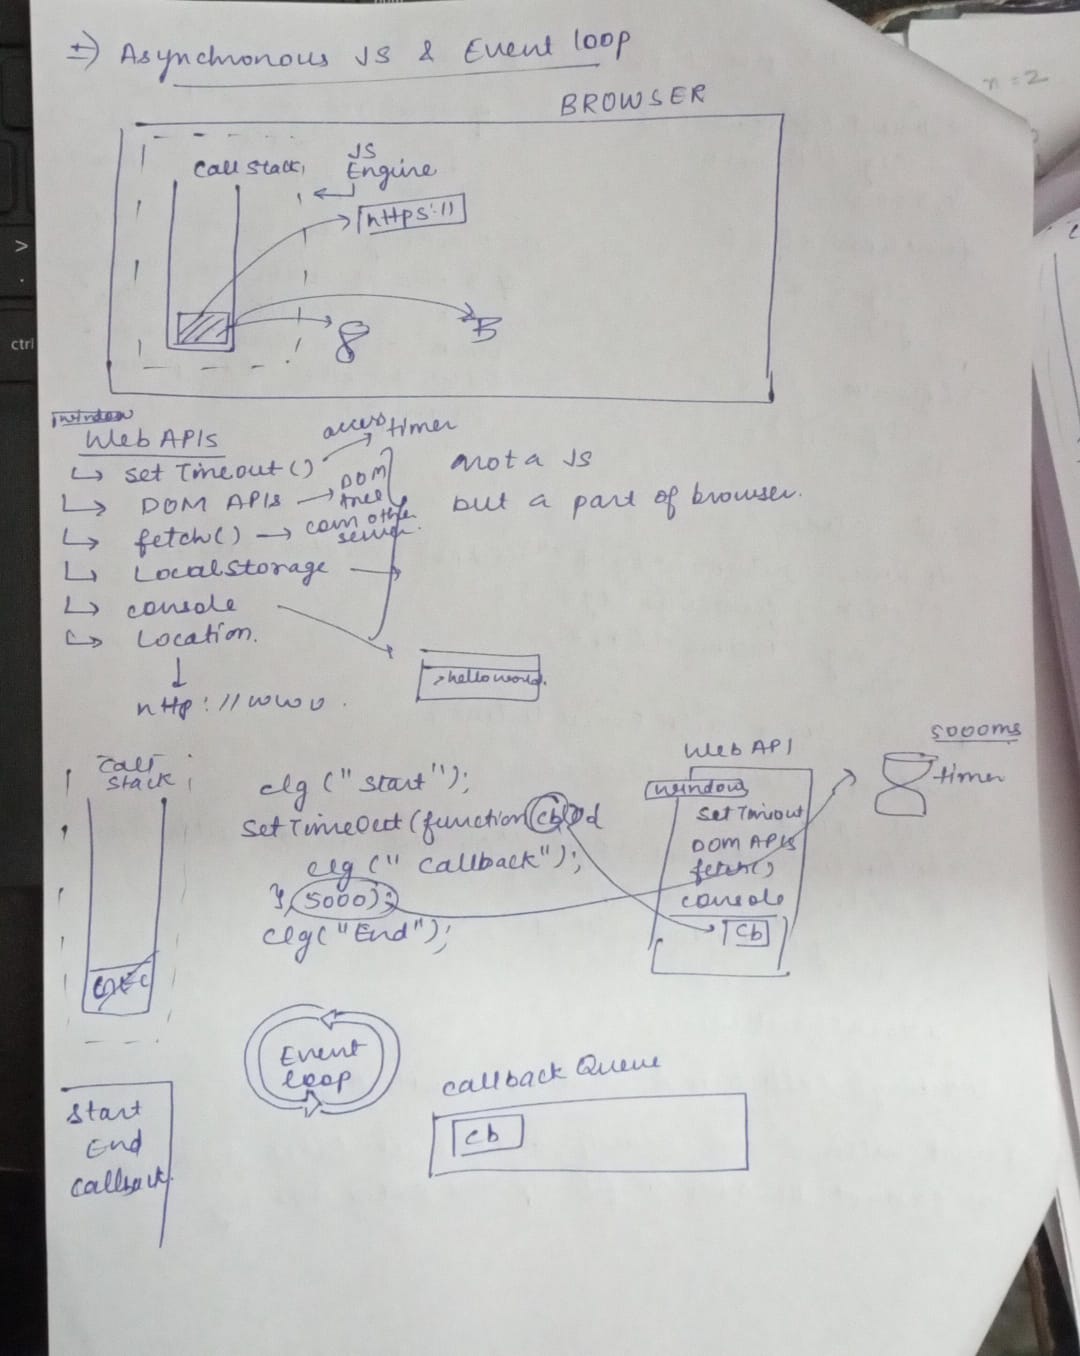 =) Asynchronous JS & Event loop
BROWSER
Call Stack
JS
Engine
https://
8
B
window
Web APIs
access timer
↳ set Timeout()
↳ DOM APIs → DOM
tree
↳ fetch() → com other
server
↳ LocalStorage
↳ console
↳ Location.
not a JS
but a part of browser.
http://www.
>hello world.
Call
Stack
clg ("start");
setTimeOut (function cb() {
clg (" callback");
}, 5000);
clg("End");
Web API
window
set Timeout
DOM APIs
fetch()
console
cb
5000ms
timer
GEC
Event
loop
callback Queue
cb
Start
End
Callback
n = 2
>
ctrl